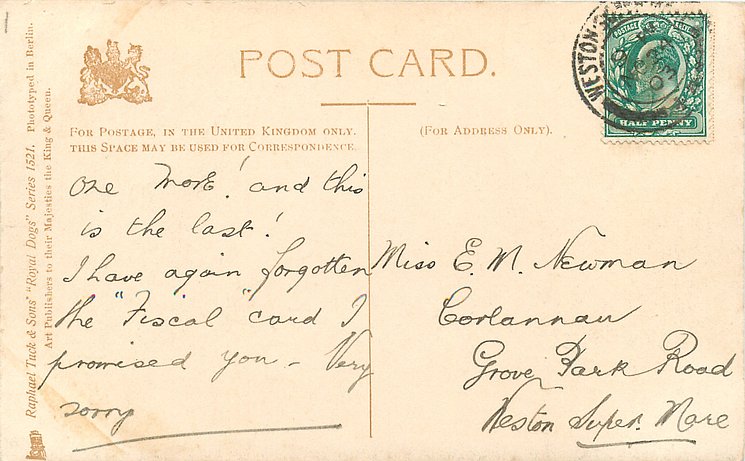 POST CARD.
FOR POSTAGE, IN THE UNITED KINGDOM ONLY.
THIS SPACE MAY BE USED FOR CORRESPONDENCE.
(FOR ADDRESS ONLY).
Raphael Tuck & Sons' "Royal Dogs" Series 1521. Phototyped in Berlin.
Art Publishers to their Majesties the King & Queen.
One MorE! and this
is the last!
I have again forgotten
the "Fiscal" card I
promised you – Very
sorry
Miss E. M. Newman
Corlannau
Grove Park Road
Weston Super. Mare
WESTON-S
POSTAGE
HALF PENNY